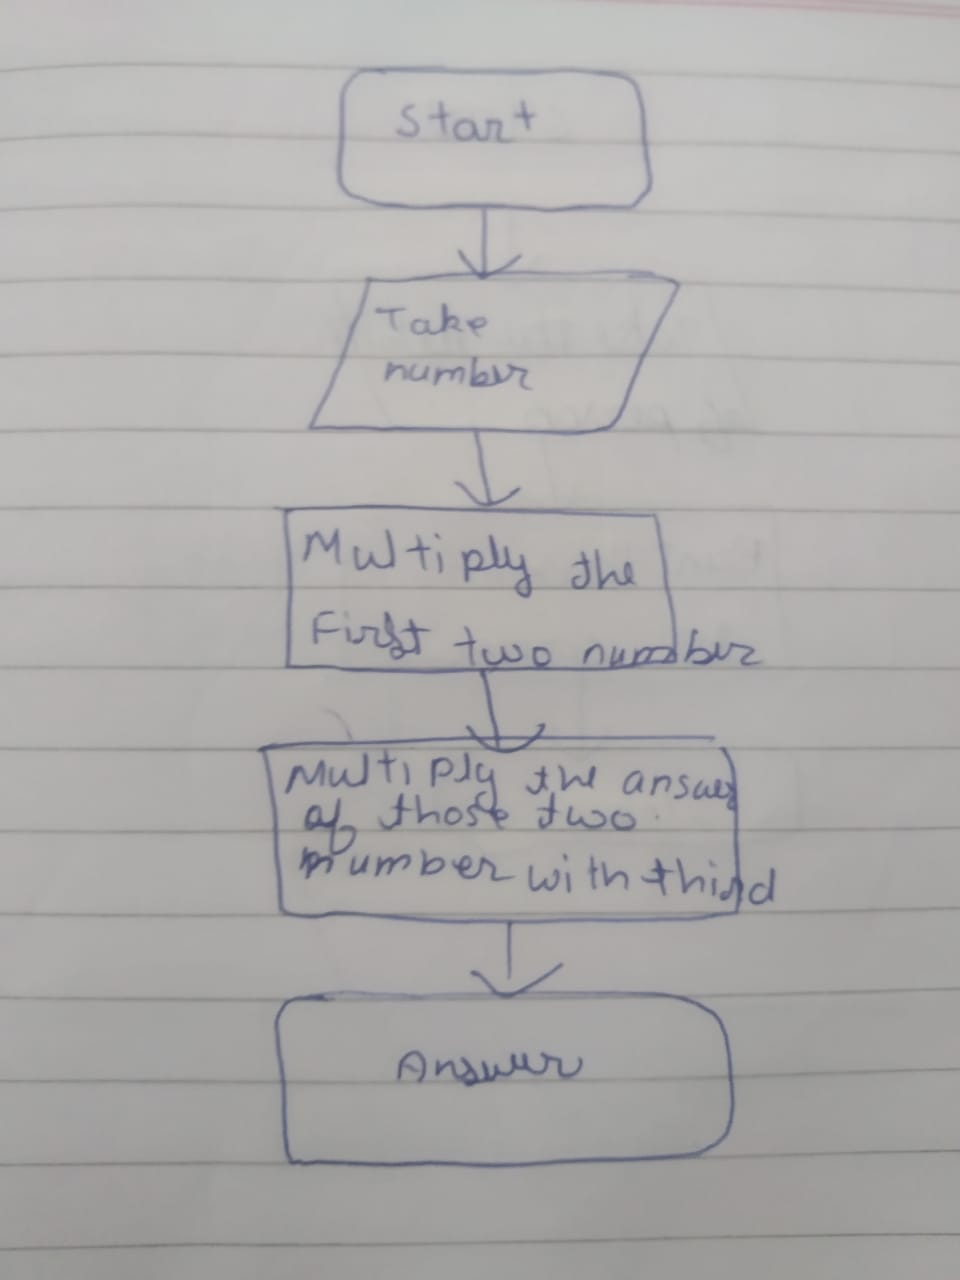 Start
Take
number
Multiply the
First two number
Multiply the answer
of those two
number with third
Answer